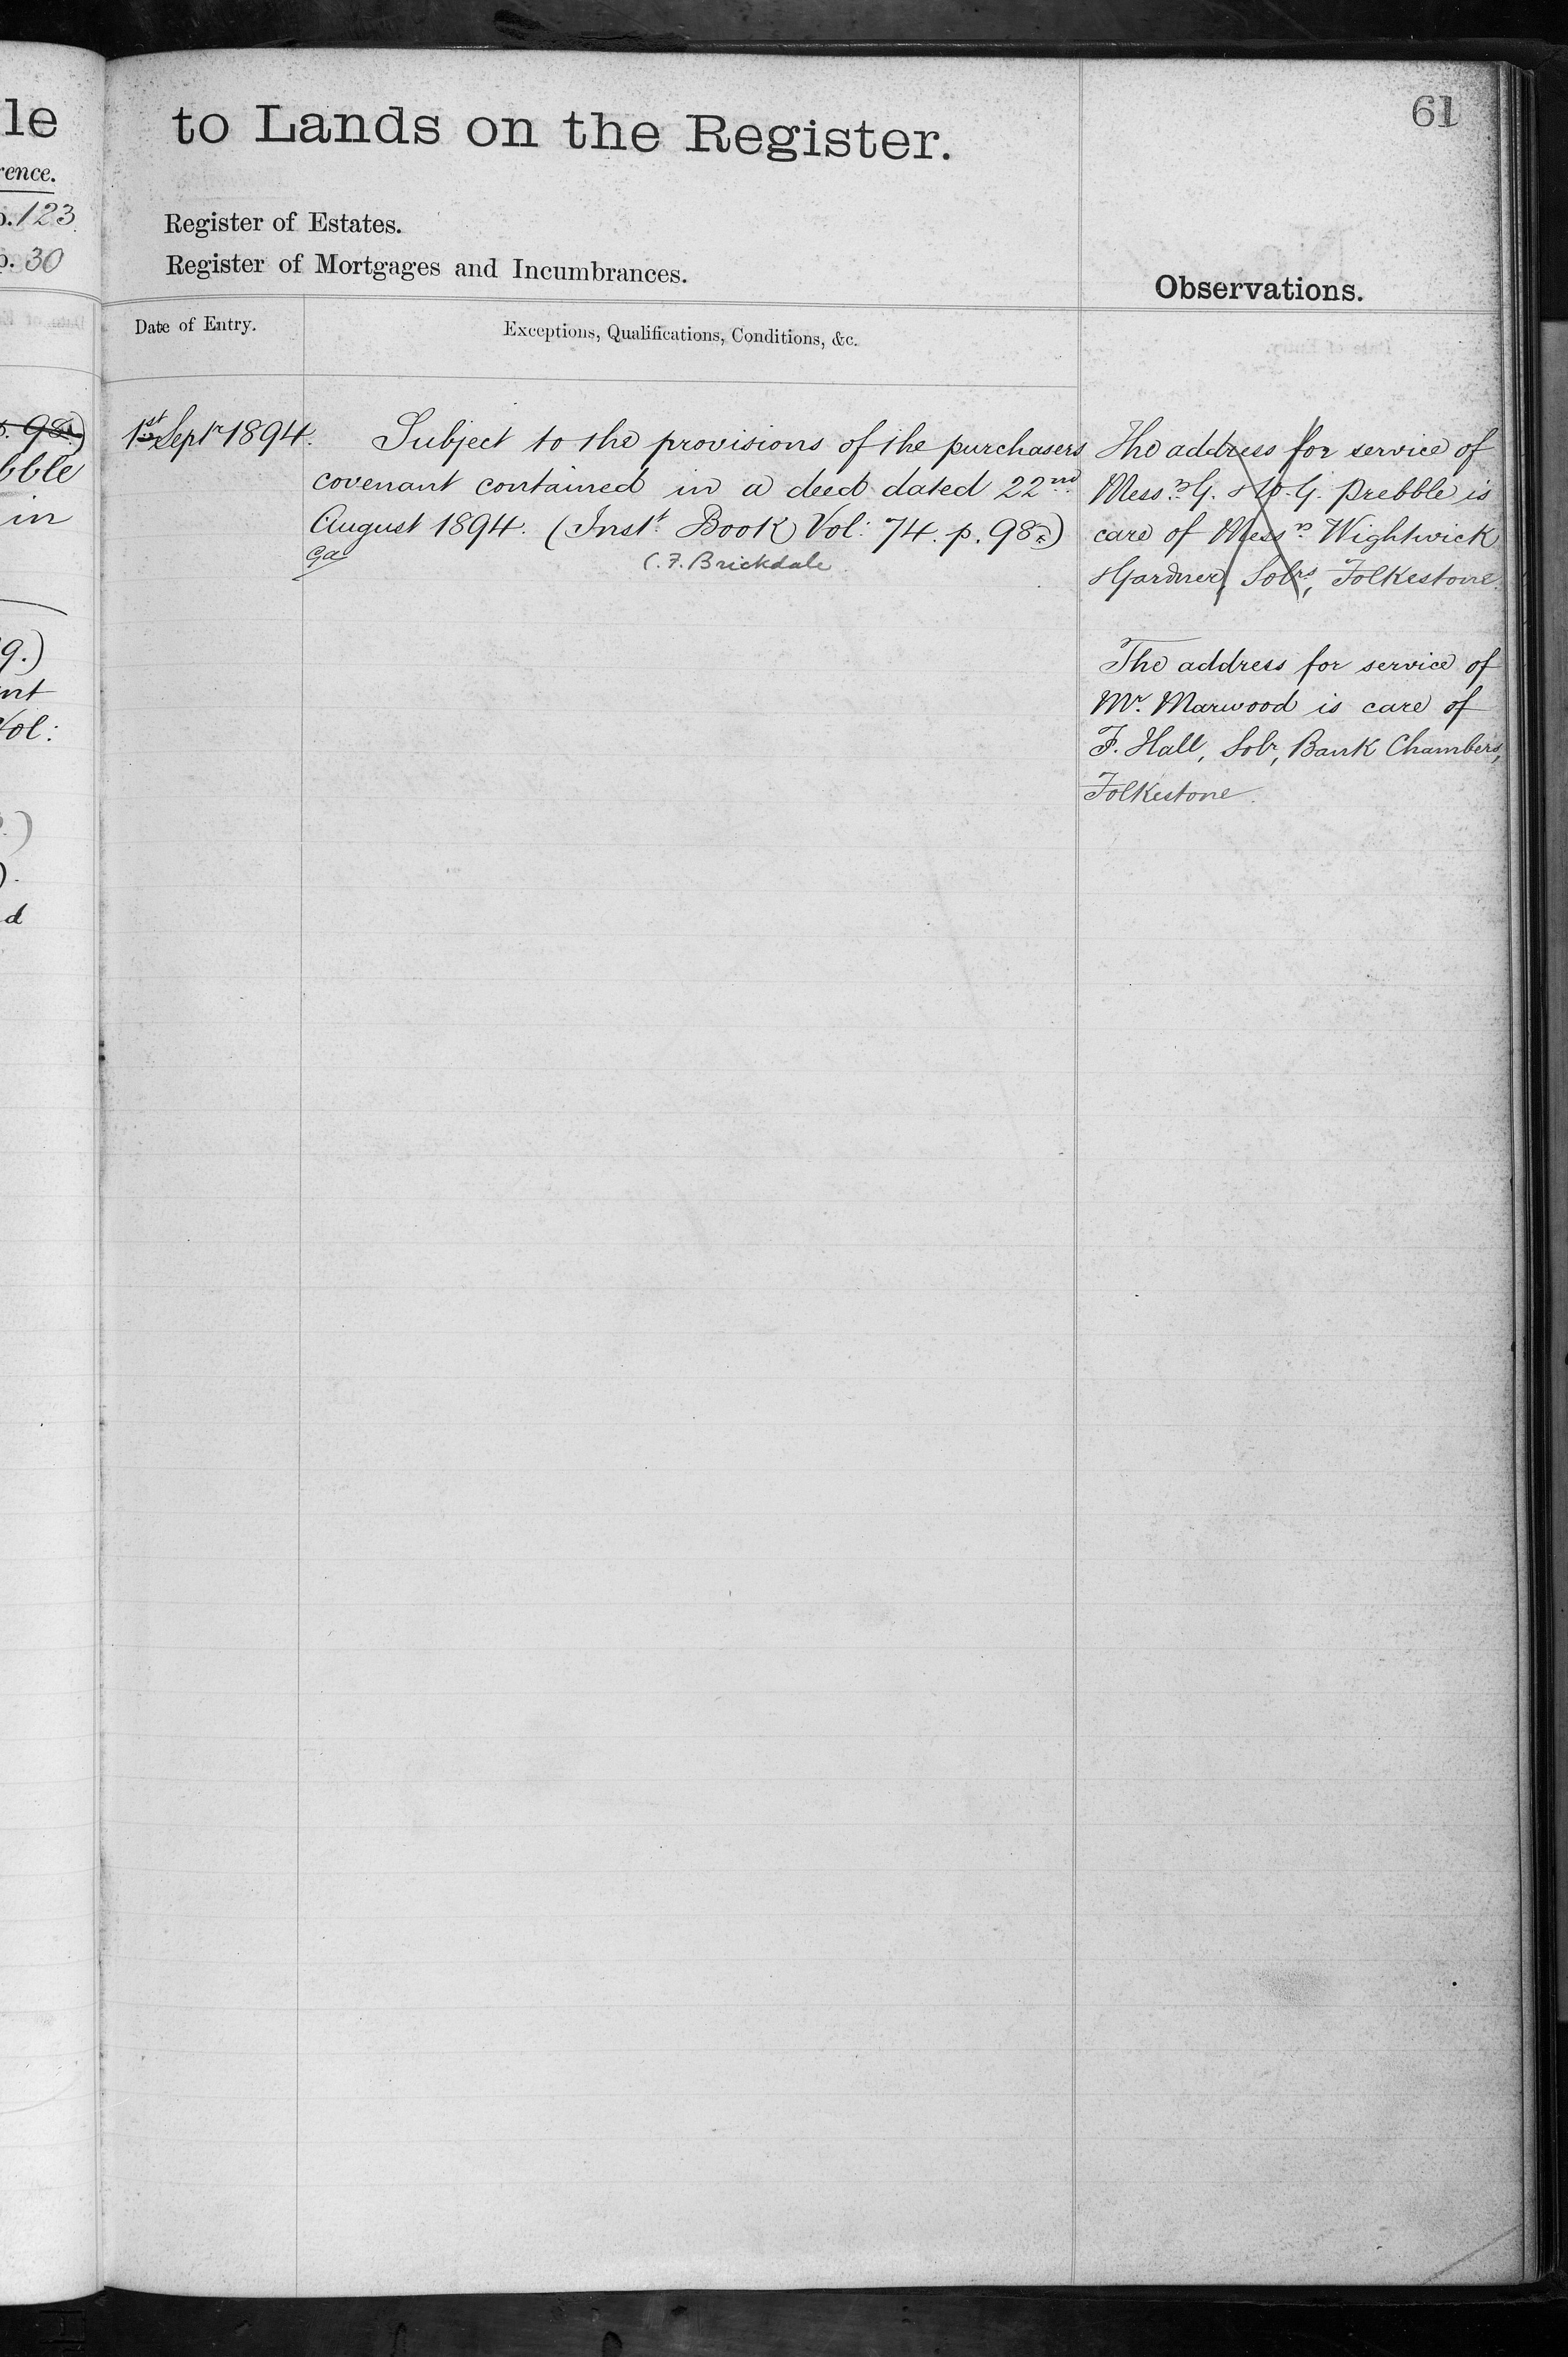 le
rence.
p. 123
p. 30
p. 98
bble
in
9.)
ent
Vol:
.)
).
d
to Lands on the Register.
61
Register of Estates.
Register of Mortgages and Incumbrances.
Observations.
Date of Entry.
Exceptions, Qualifications, Conditions, &c.
1st Septr 1894.
Subject to the provisions of the purchasers
covenant contained in a deed dated 22nd
August 1894. (Instt Book Vol: 74. p. 98)
C. F. Brickdale
The address for service of
Messrs G. & W. G. Prebble is
care of Messrs Wightwick
& Gardner, Solrs, Folkestone.
The address for service of
Mr. Marwood is care of
F. Hall, Solr, Bank Chambers,
Folkestone.